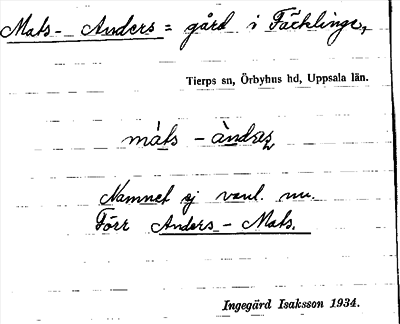 Mats- Anders = gård i Fäcklinge,
Tierps sn, Örbyhus hd, Uppsala län.
màts - àndəʂ
Namnet ej vanl. nu.
Förr Anders - Mats.
Ingegärd Isaksson 1934.